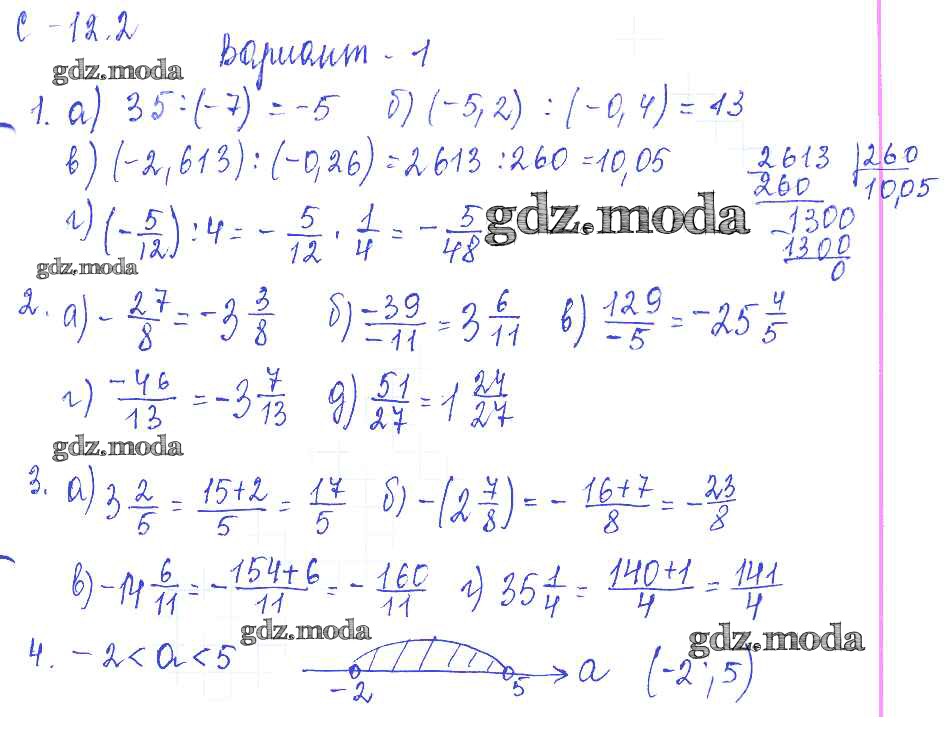 С - 12.2
Вариант - 1
gdz.moda
1. а) 35 : (-7) = -5 б) (-5,2) : (-0,4) = 13
в) (-2,613) : (-0,26) = 2613 : 260 = 10,05
2613 | 260
260 10,05
-1300
1300
0
г) (-5/12) : 4 = - 5/12 · 1/4 = - 5/48
gdz.moda
gdz.moda
2. а) - 27/8 = -3 3/8 б) -39/-11 = 3 6/11 в) 129/-5 = -25 4/5
г) -46/13 = -3 7/13 д) 51/27 = 1 24/27
gdz.moda
3. а) 3 2/5 = 15+2/5 = 17/5 б) -(2 7/8) = - 16+7/8 = - 23/8
в) -14 6/11 = - 154+6/11 = - 160/11 г) 35 1/4 = 140+1/4 = 141/4
gdz.moda
gdz.moda
4. -2 < a < 5
-2 5 a (-2 ; 5)